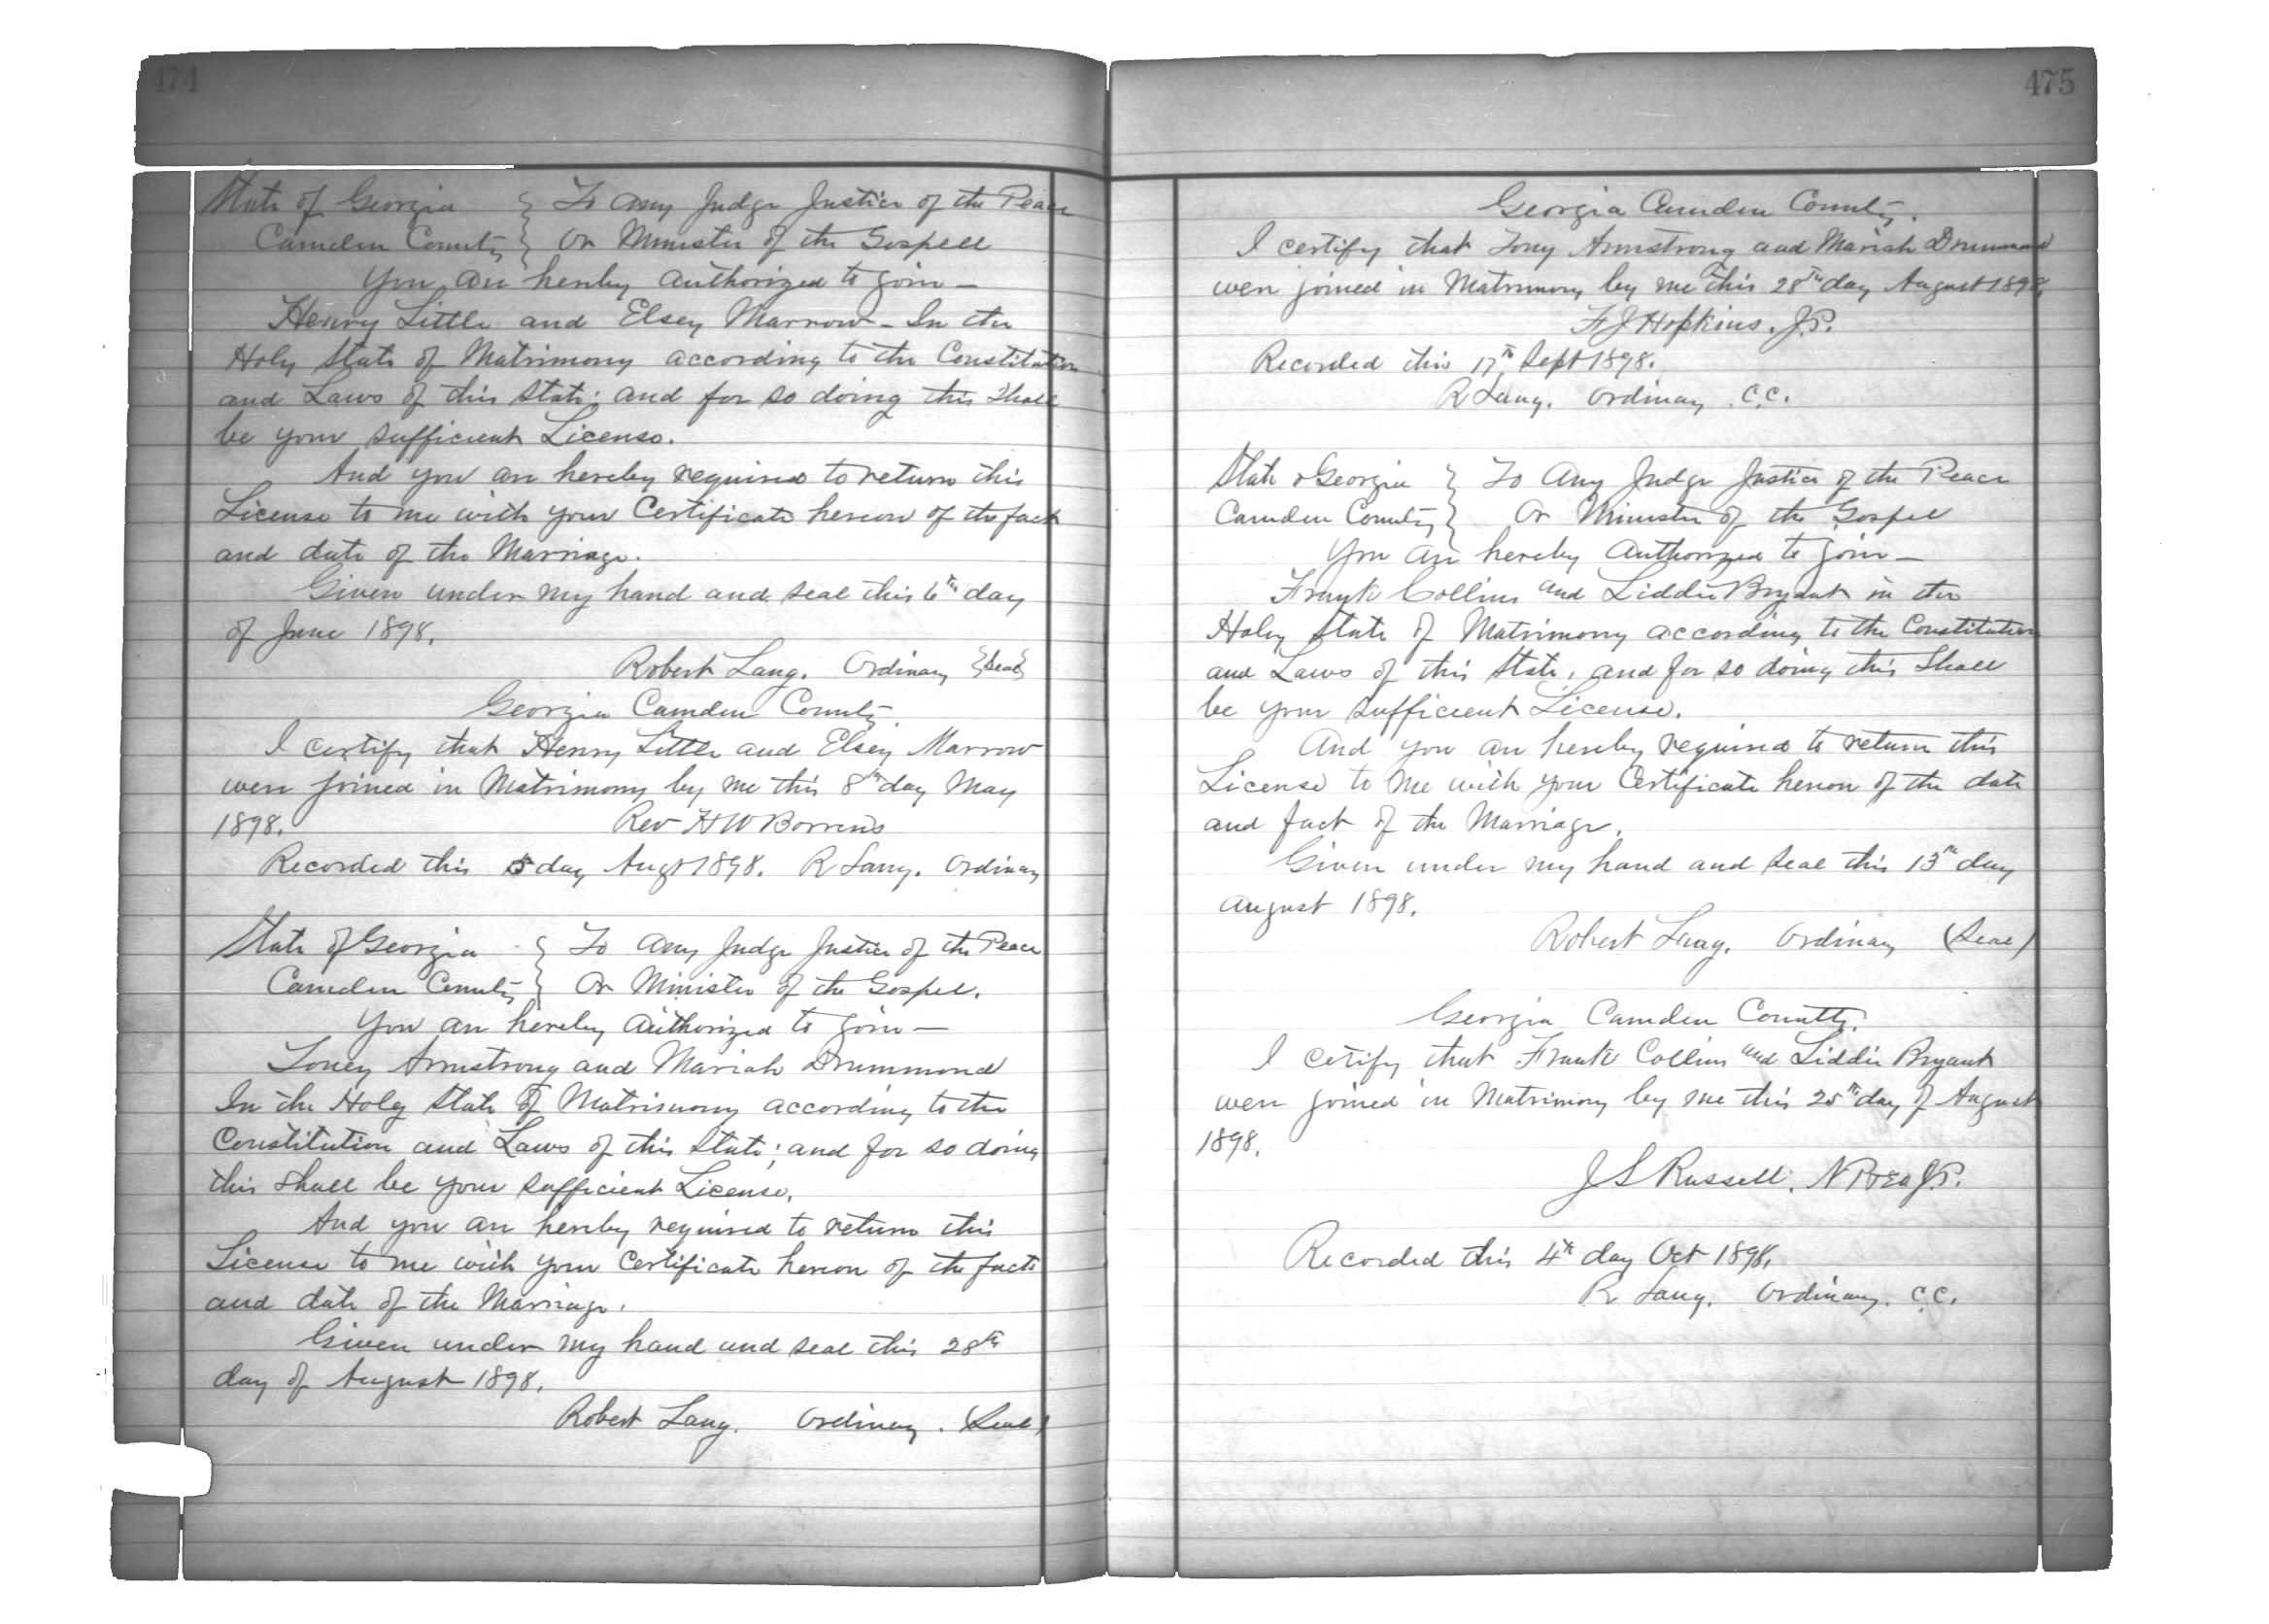 474
State of Georgia } To any Judge Justice of the Peace
Camden County } Or Minister of the Gospell
You are hereby authorized to join —
Henry Little and Elsey Marrow - In the
Holy State of Matrimony according to the Constitution
and Laws of this State; and for so doing this Shall
be your sufficient License.
And you are hereby required to return this
License to me with your Certificate hereon of the fact
and date of the Marriage.
Given under my hand and seal this 6th day
of June 1898.
Robert Lang. Ordinary {Seal}
Georgia Camden County
I certify that Henry Little and Elsey Marrow
were joined in Matrimony by me this 8th day May
1898. Rev H W
Recorded this 5 day Augt 1898. R Lang. Ordinary
State of Georgia } To any Judge Justice of the Peace
Camden County } Or Minister of the Gospel.
You are hereby authorized to join —
Toney Armstrong and Mariah Drummond
In the Holy State of Matrimony according to the
Constitution and Laws of this State; and for so doing
this shall be your sufficient License.
And you are hereby required to return this
License to me with your Certificate hereon of the facts
and date of the Marriage.
Given under my hand and seal this 28th
day of August 1898.
Robert Lang. Ordinary. (Seal)
475
Georgia Camden County.
I certify that Tony Armstrong and Mariah Drummond
were joined in Matrimony by me this 28th day August 1898.
Hopkins. J.P.
Recorded this 17th Sept 1898.
R Lang. Ordinary C.C.
State o Georgia } To Any Judge Justice of the Peace
Camden County } Or Minister of the Gospel
You are hereby authorized to join —
Frank Collins and Liddie Bryant in the
Holy State of Matrimony according to the Constitution
and Laws of this State, and for so doing this Shall
be your sufficient License.
And you are hereby required to return this
License to me with your Certificate hereon of the date
and fact of the Marriage.
Given under my hand and seal this 13th day
august 1898.
Robert Lang. Ordinary (Seal)
Georgia Camden County.
I cetify that Frank Collins and Liddie Bryant
were joined in Matrimony by me this 25th day of August
1898.
J S Russell. N P & Ex J.P.
Recorded this 4th day Oct 1898.
R Lang. Ordinary. C.C.